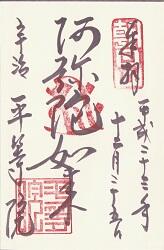 奉拝
平成二十三年
十二月二十五日
阿弥陀如来
宇治
平等院